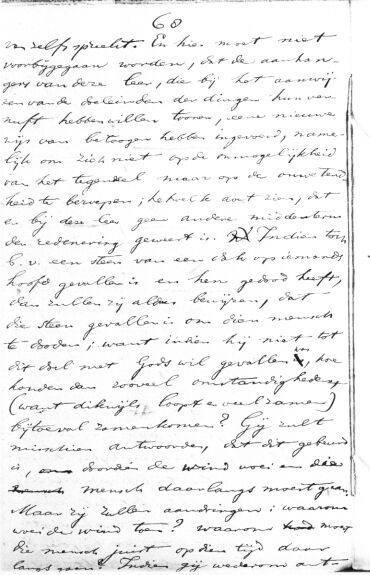 68
vanzelf spreekt. En hier moet niet
voorbijgegaan worden, dat de aanhan-
gers van deze leer, die bij het aanwij-
zen van de doeleinden der dingen hun ver-
nuft hebben willen toonen, eene nieuwe
wijs van betoogen hebben ingevoerd, name-
lijk om zich niet op de onmogelijkheid
van het tegendeel maar op de onwetend
heid te beroepen; hetwelk doet zien, dat
er bij deze leer geen andere middelterm
der redenering geweest is. Indien toch
b. v. een steen van een dak op iemands
hoofd gevallen is en hem gedood heeft,
dan zullen zij aldus bewijzen, dat
die steen gevallen is om dien mensch
te dooden; want indien hij niet tot
dit doel met Gods wil gevallen was, hoe
konden dan zooveel omstandigheden
(want dikwijls loopt er veel zamen)
bij toeval zamenkomen? Gij zult
misschien antwoorden, dat dit gebeurd
is, doordien de wind woei en die
mensch daarlangs moest gaan.
Maar zij zullen aandringen: waarom
woei de wind toen? waarom moest
die mensch juist op dien tijd daar
langs gaan? Indien gij wederom ant-